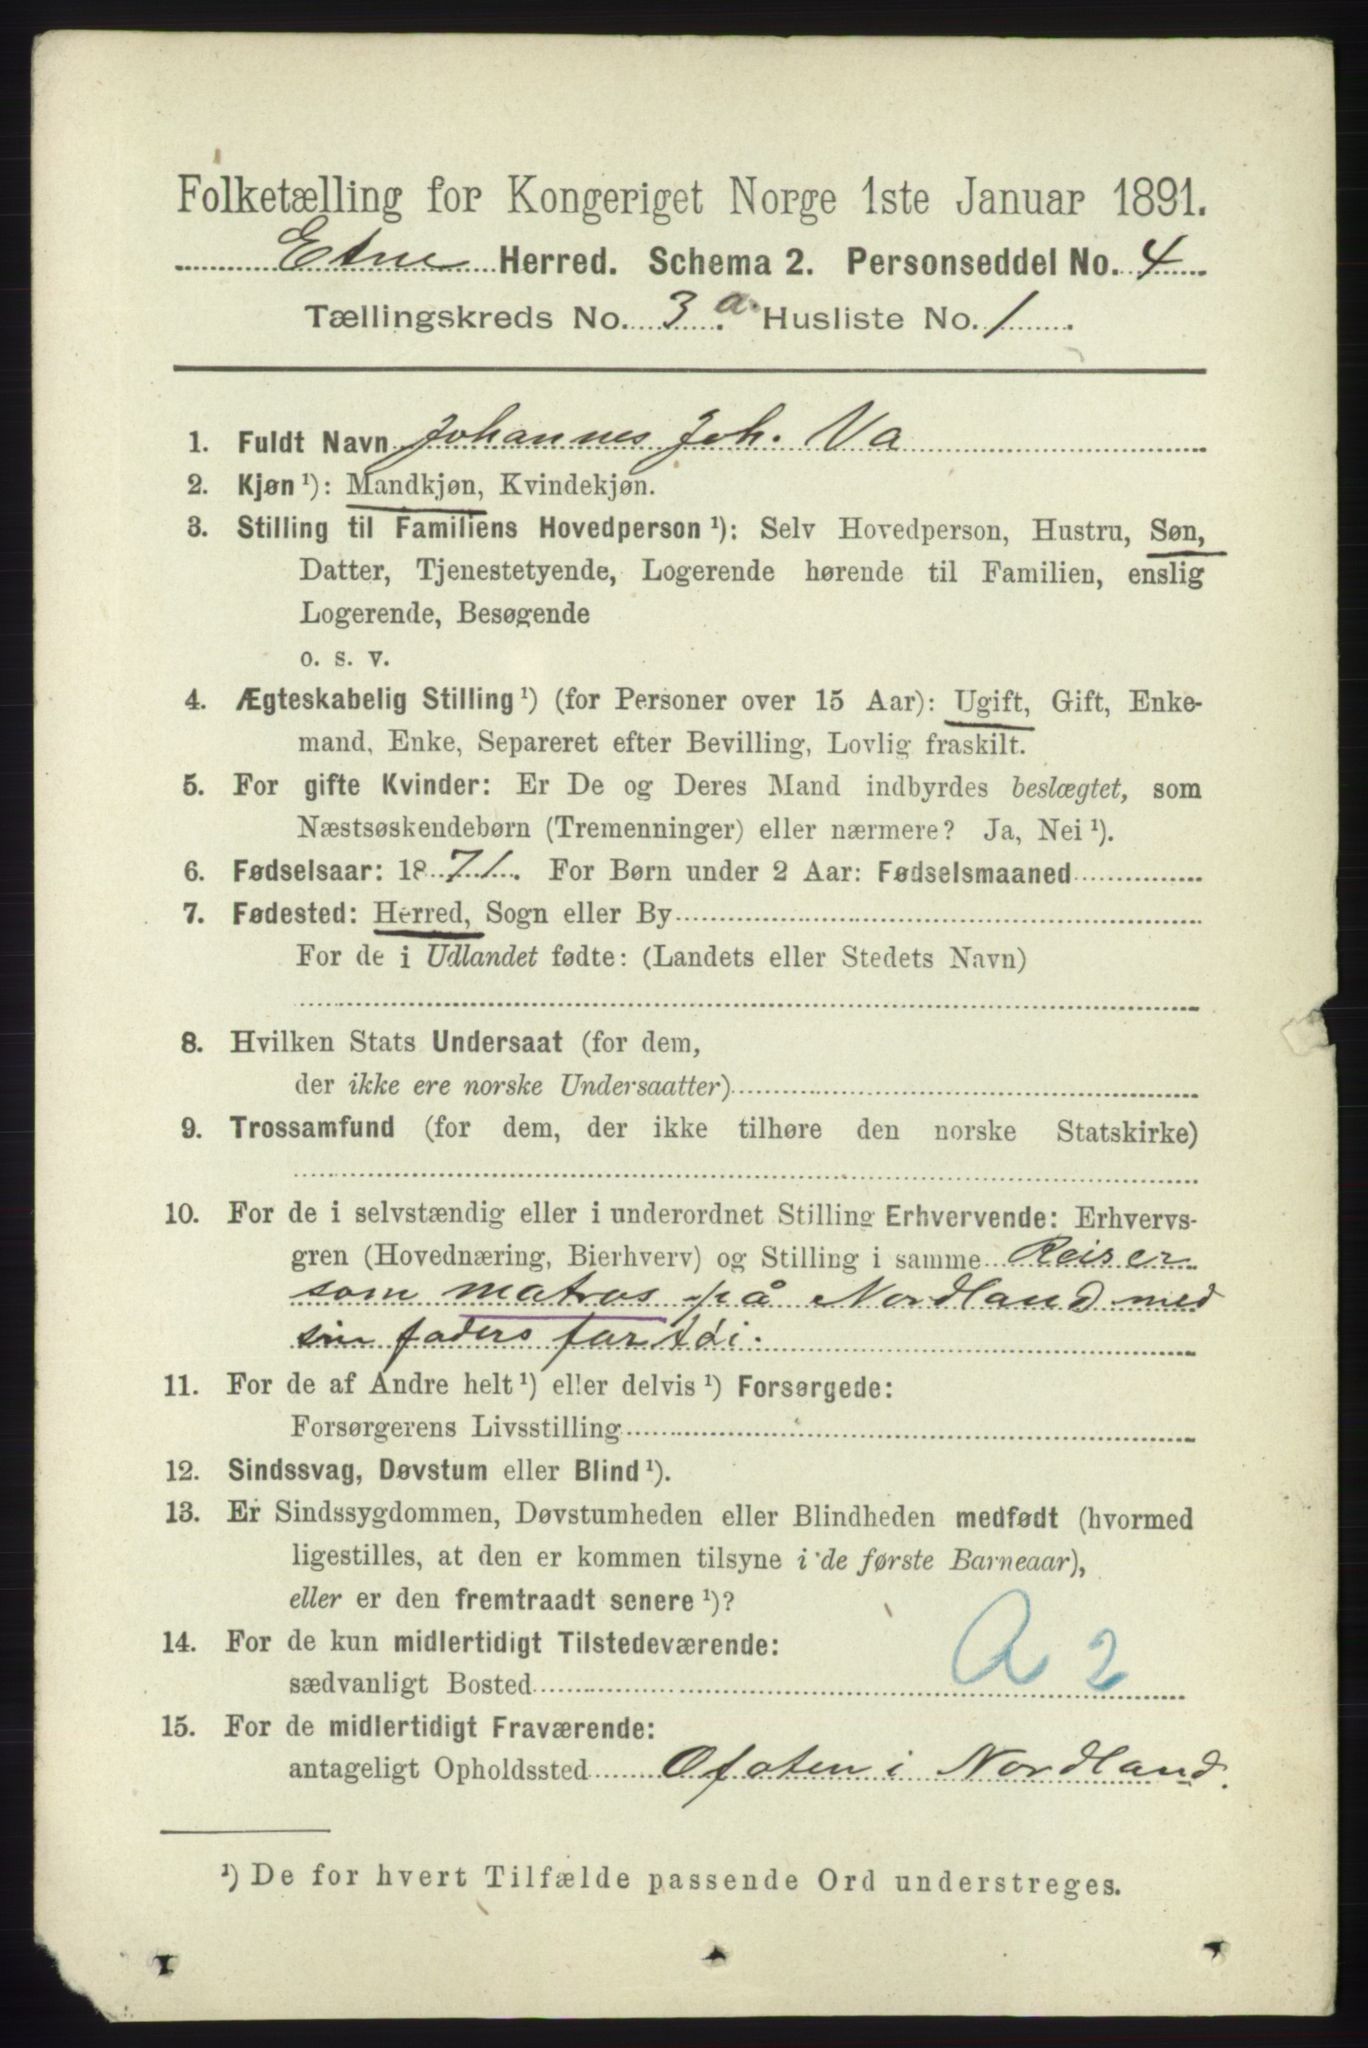 Folketælling for Kongeriget Norge 1ste Januar 1891.
Etne Herred. Schema 2. Personseddel No. 4
Tællingskreds No. 3 a. Husliste No. 1
1. Fuldt Navn Johannes Joh. Va
2. Kjøn ¹): Mandkjøn, Kvindekjøn.
3. Stilling til Familiens Hovedperson ¹): Selv Hovedperson, Hustru, Søn,
Datter, Tjenestetyende, Logerende hørende til Familien, enslig
Logerende, Besøgende
o. s. v.
4. Ægteskabelig Stilling ¹) (for Personer over 15 Aar): Ugift, Gift, Enke-
mand, Enke, Separeret efter Bevilling, Lovlig fraskilt.
5. For gifte Kvinder: Er De og Deres Mand indbyrdes beslægtet, som
Næstsøskendebørn (Tremenninger) eller nærmere? Ja, Nei ¹).
6. Fødselsaar: 1871. For Børn under 2 Aar: Fødselsmaaned
7. Fødested: Herred, Sogn eller By
For de i Udlandet fødte: (Landets eller Stedets Navn)
8. Hvilken Stats Undersaat (for dem,
der ikke ere norske Undersaatter)
9. Trossamfund (for dem, der ikke tilhøre den norske Statskirke)
10. For de i selvstændig eller i underordnet Stilling Erhvervende: Erhvervs-
gren (Hovednæring, Bierhverv) og Stilling i samme Reiser
som matros på Nordland med
sin faders fartøi.
11. For de af Andre helt ¹) eller delvis ¹) Forsørgede:
Forsørgerens Livsstilling
12. Sindssvag, Døvstum eller Blind ¹).
13. Er Sindssygdommen, Døvstumheden eller Blindheden medfødt (hvormed
ligestilles, at den er kommen tilsyne i de første Barneaar),
eller er den fremtraadt senere ¹)?
14. For de kun midlertidigt Tilstedeværende:
sædvanligt Bosted
A 2
15. For de midlertidigt Fraværende:
antageligt Opholdssted Ofoten i Nordland.
¹) De for hvert Tilfælde passende Ord understreges.